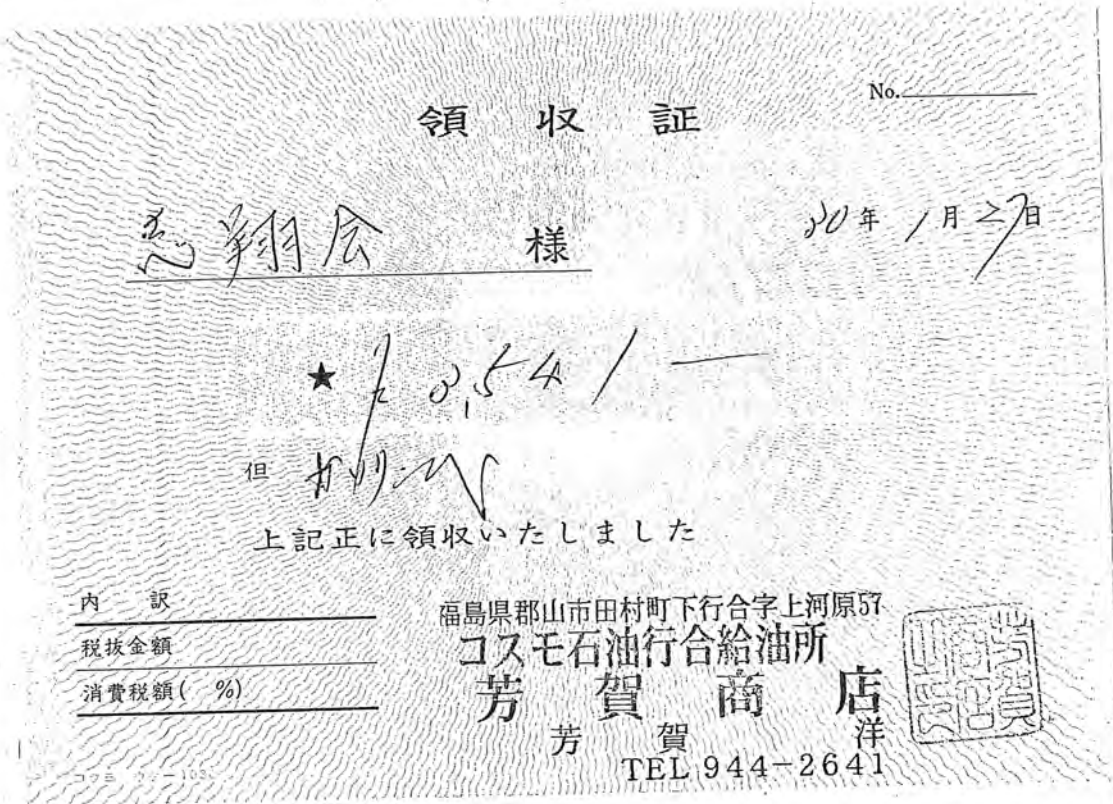 No.
領収証
志翔会 様
30年 1月27日
★
但 ガソリン代
上記正に領収いたしました
内訳
税抜金額
消費税額( %)
福島県郡山市田村町下行合字上河原57
コスモ石油行合給油所
芳賀商店
芳賀 洋
TEL 944-2641